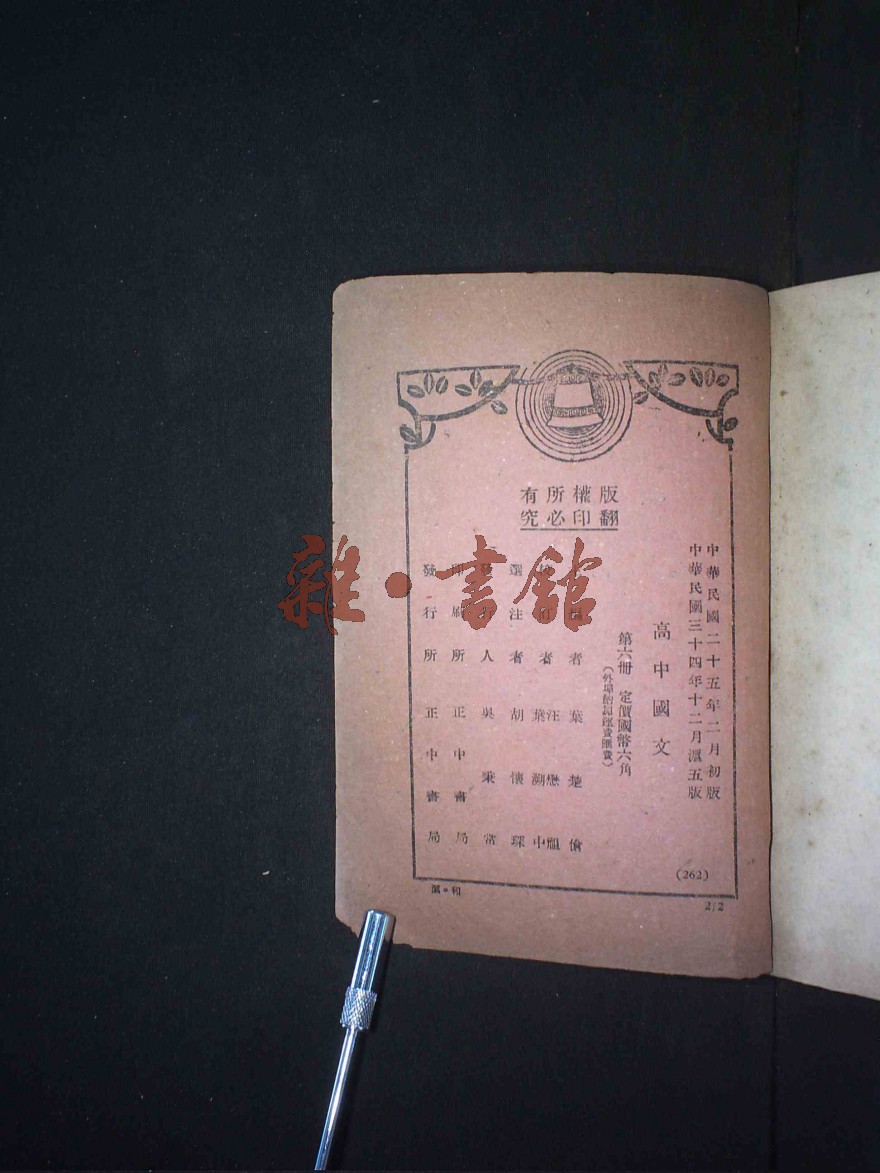 版權所有
翻印必究
中華民國二十五年二月初版
中華民國三十四年十二月滬五版
高中國文
第六冊 定價國幣六角
(外埠酌加運費匯費)
者 葉楚傖
者 汪懋祖
葉溯中
選注者 胡懷琛
人 吳秉常
印刷所 正中書局
發行所 正中書局
(262)
滬·和
2/2
雜·書館